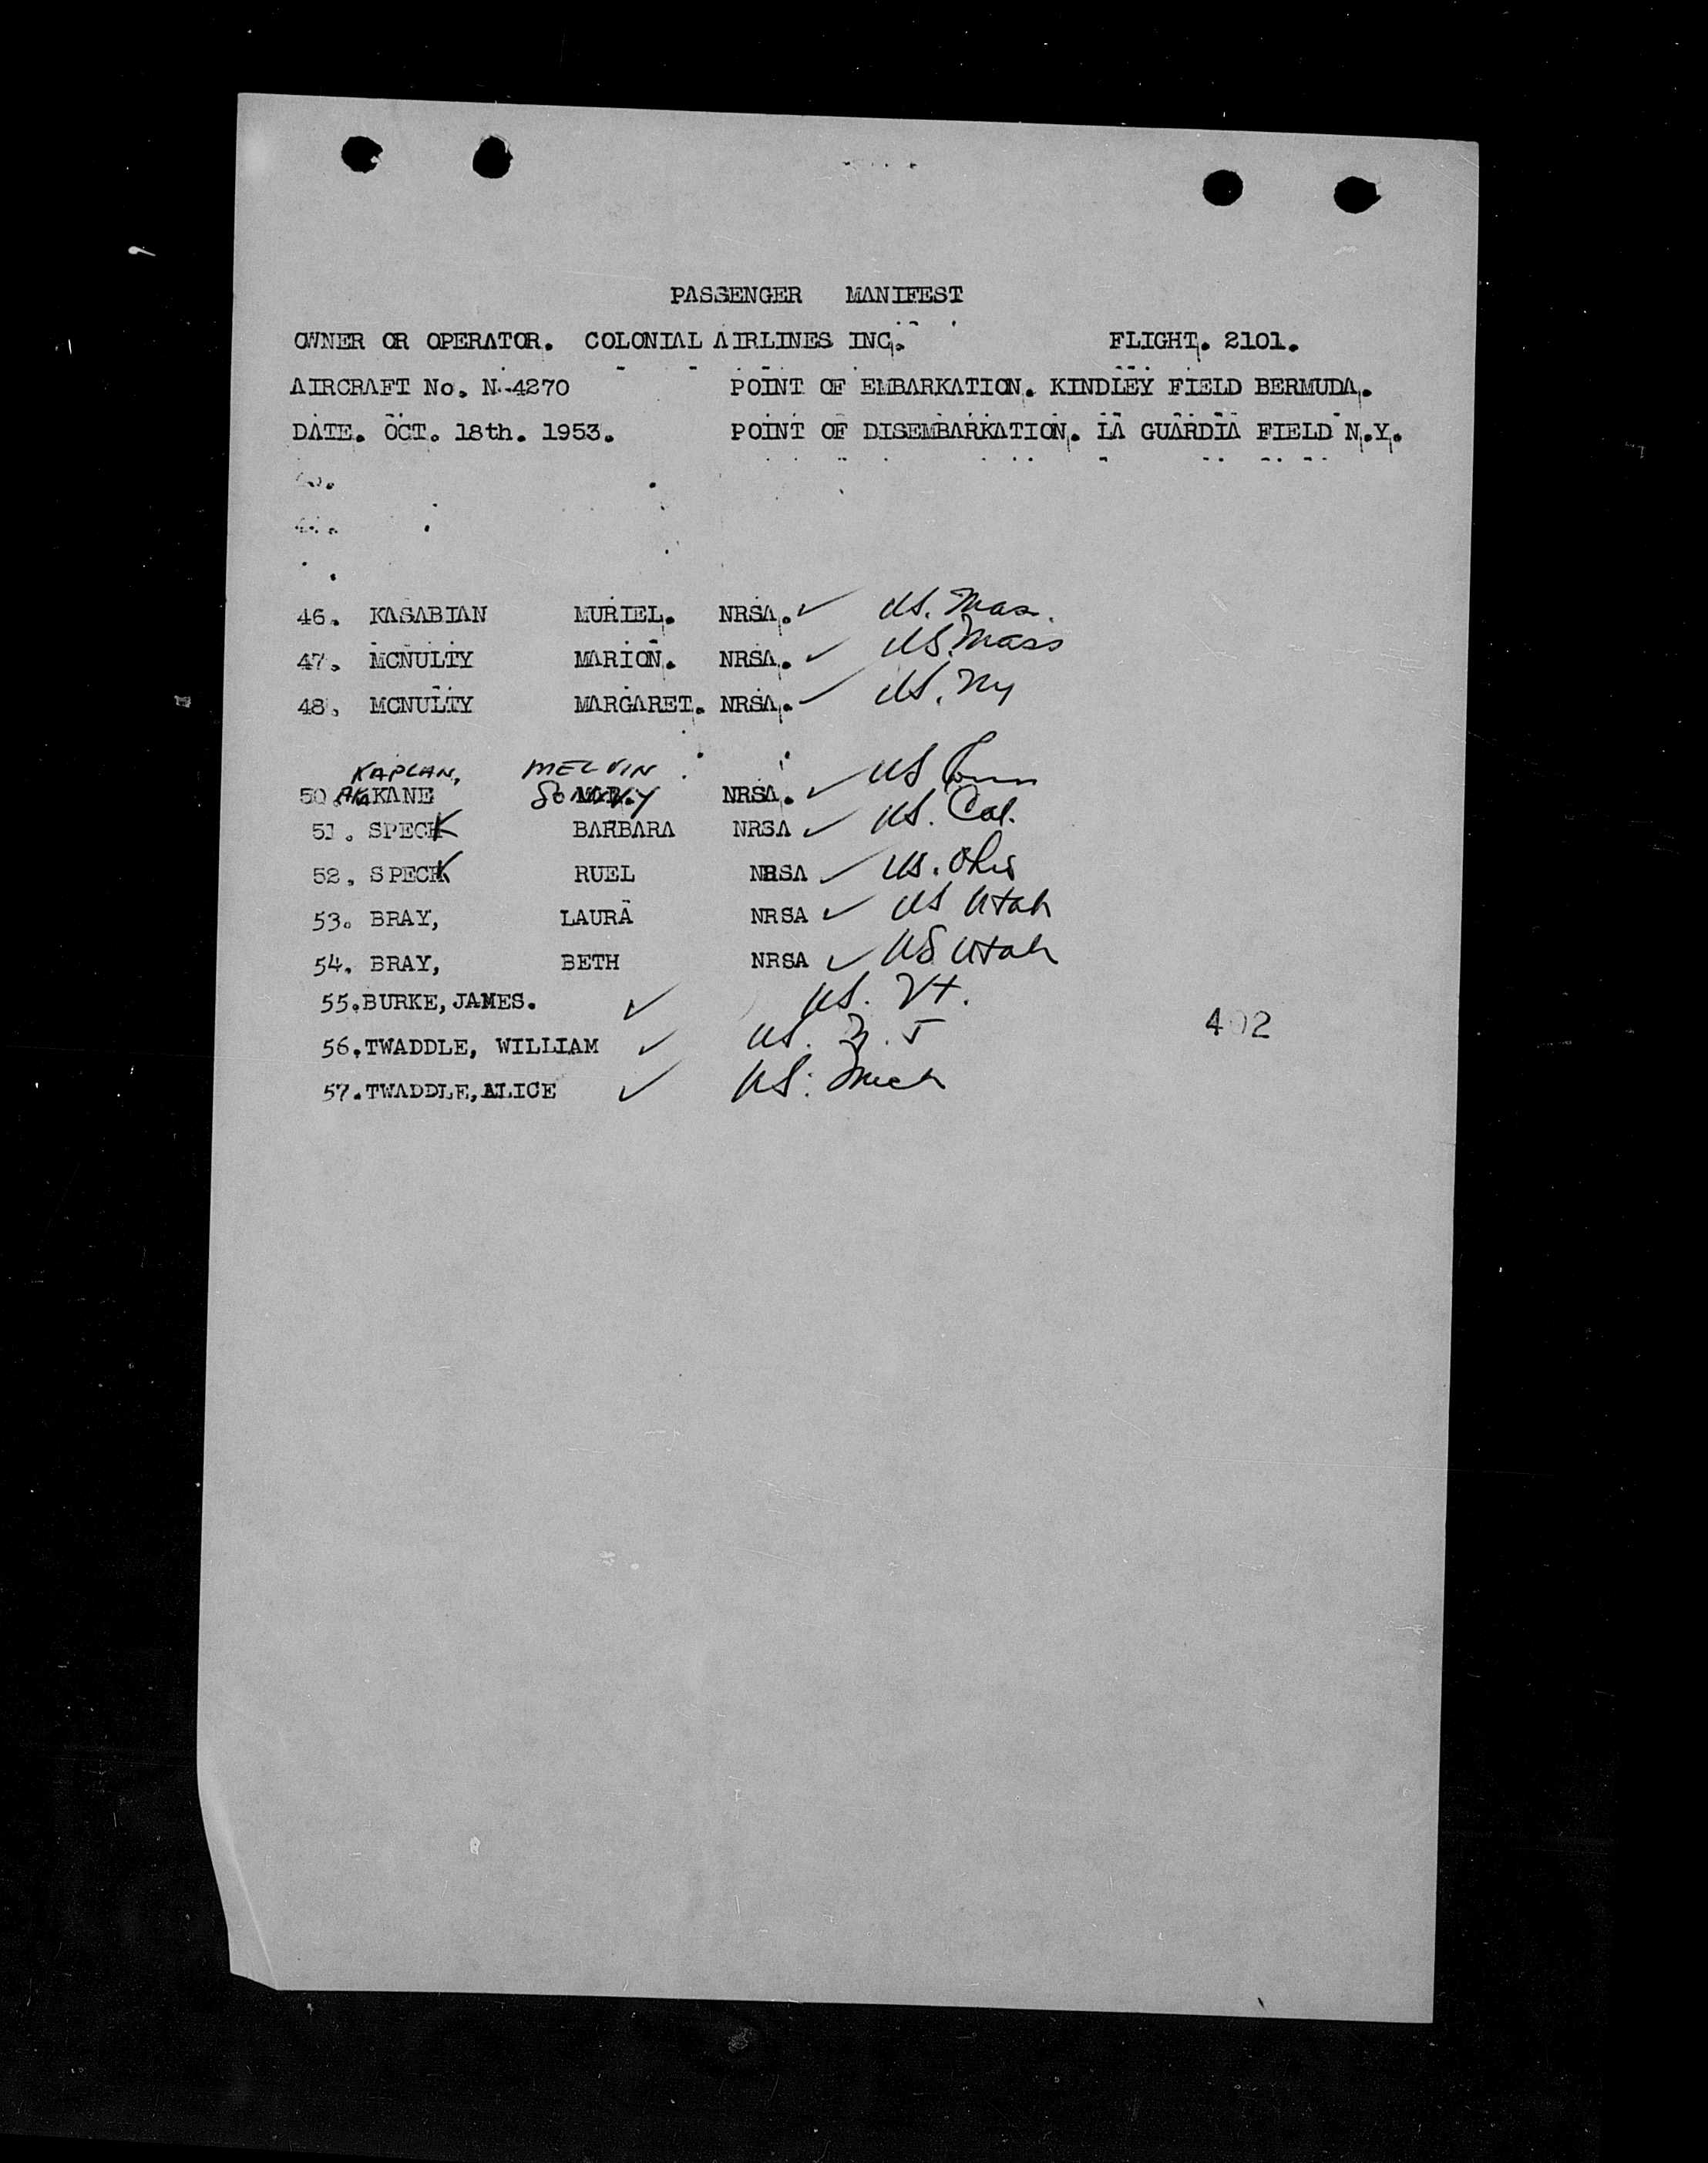 PASSENGER MANIFEST
OWNER OR OPERATOR. COLONIAL AIRLINES INC. FLIGHT. 2101.
AIRCRAFT No. N-4270 POINT OF EMBARKATION. KINDLEY FIELD BERMUDA.
DATE. OCT. 18th. 1953. POINT OF DISEMBARKATION. LA GUARDIA FIELD N.Y.
46. KASABIAN MURIEL. NRSA. ✓ US. Mass.
47. MCNULTY MARION. NRSA. ✓ US. Mass
48. MCNULTY MARGARET. NRSA. ✓ US. NY
KAPLAN, MELVIN
50 AKA KANE NRSA. ✓ US Conn
51. SPECK BARBARA NRSA ✓ US. Cal.
52. SPECK RUEL NRSA ✓ US. Ohio
53. BRAY, LAURA NRSA ✓ US Utah
54. BRAY, BETH NRSA ✓ US Utah
55. BURKE, JAMES. ✓ US. Vt.
56. TWADDLE, WILLIAM ✓ US. N. J
57. TWADDLE, ALICE ✓ US. Mich
402